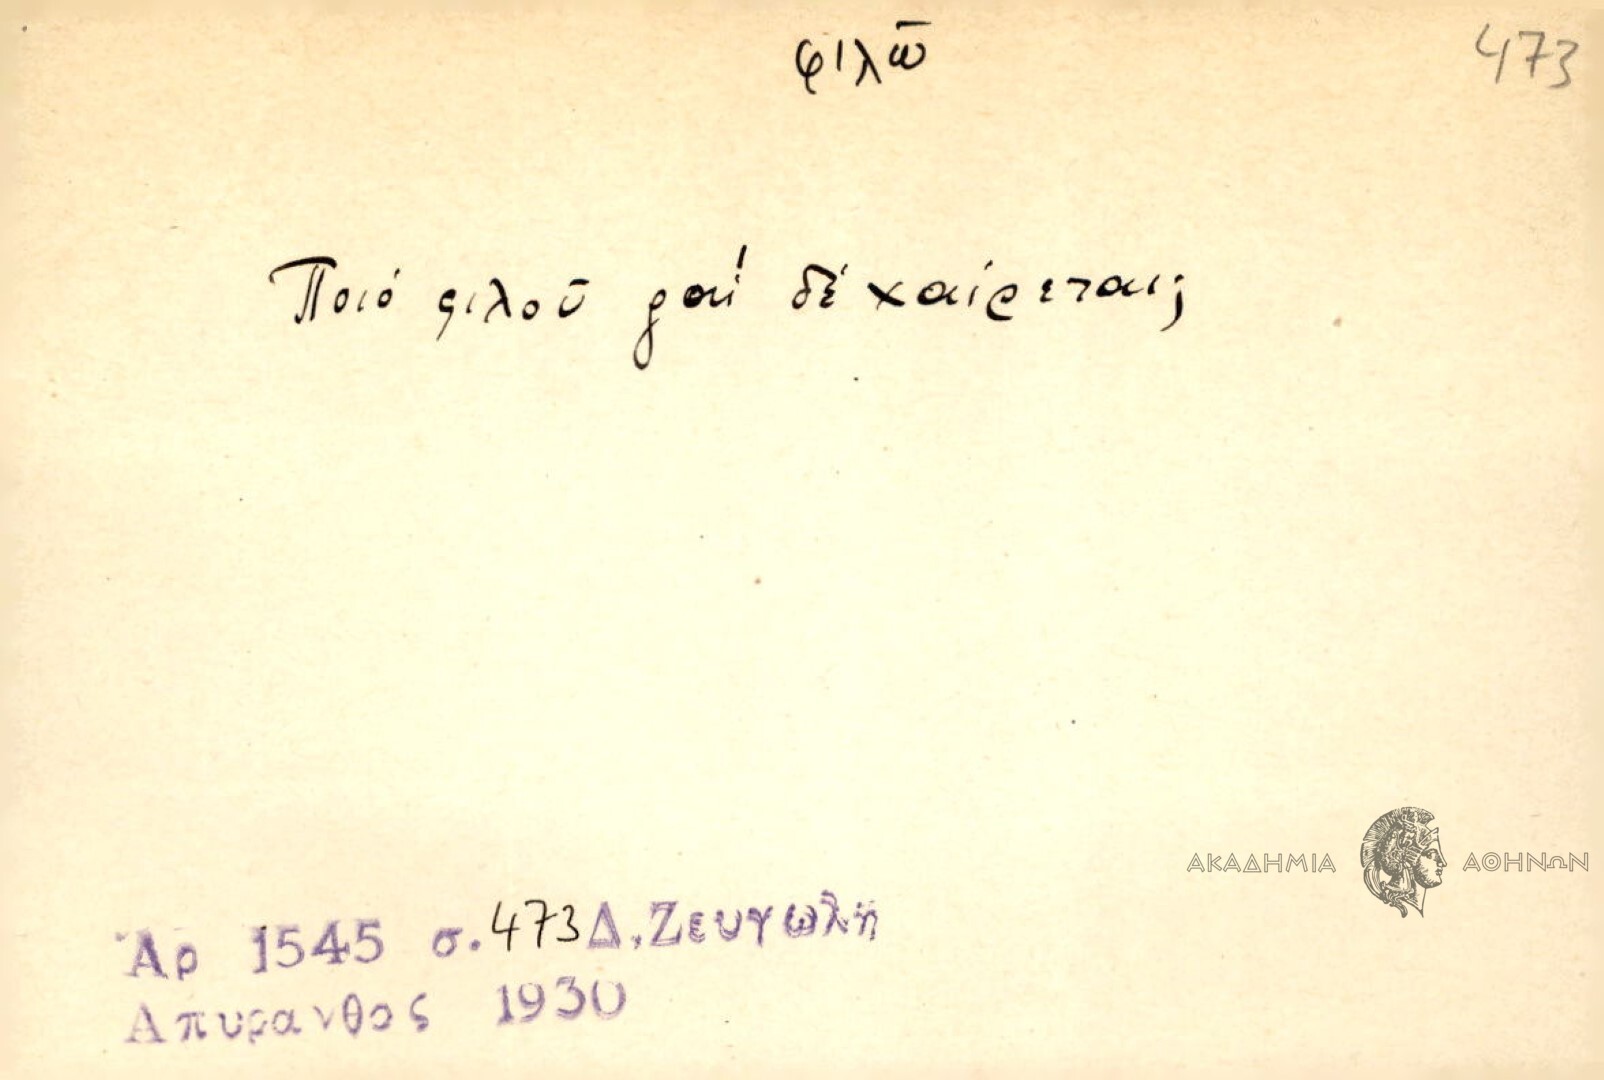 φιλῶ
473
Ποιό φιλοῦ δέ χαίρεται;
ΑΚΑΔΗΜΙΑ ΑΘΗΝΩΝ
Ἀρ 1545 σ. 473 Δ. Ζευγωλη
Απυρανθος 1930